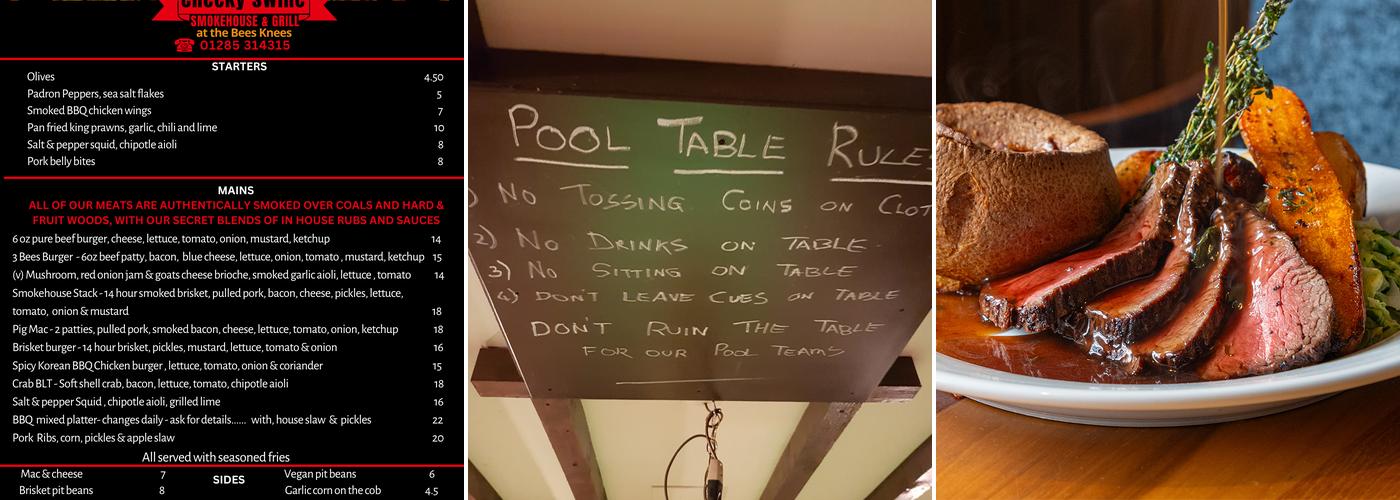 Cheeky Swine
SMOKEHOUSE & GRILL
at the Bees Knees
01285 314315
STARTERS
Olives 4.50
Padron Peppers, sea salt flakes 5
Smoked BBQ chicken wings 7
Pan fried king prawns, garlic, chili and lime 10
Salt & pepper squid, chipotle aioli 8
Pork belly bites 8
MAINS
ALL OF OUR MEATS ARE AUTHENTICALLY SMOKED OVER COALS AND HARD &
FRUIT WOODS, WITH OUR SECRET BLENDS OF IN HOUSE RUBS AND SAUCES
6 oz pure beef burger, cheese, lettuce, tomato, onion, mustard, ketchup 14
3 Bees Burger - 6oz beef patty, bacon, blue cheese, lettuce, onion, tomato , mustard, ketchup 15
(v) Mushroom, red onion jam & goats cheese brioche, smoked garlic aioli, lettuce , tomato 14
Smokehouse Stack - 14 hour smoked brisket, pulled pork, bacon, cheese, pickles, lettuce,
tomato, onion & mustard 18
Pig Mac - 2 patties, pulled pork, smoked bacon, cheese, lettuce, tomato, onion, ketchup 18
Brisket burger - 14 hour brisket, pickles, mustard, lettuce, tomato & onion 16
Spicy Korean BBQ Chicken burger , lettuce, tomato, onion & coriander 15
Crab BLT - Soft shell crab, bacon, lettuce, tomato, chipotle aioli 18
Salt & pepper Squid , chipotle aioli, grilled lime 16
BBQ mixed platter- changes daily - ask for details...... with, house slaw & pickles 22
Pork Ribs, corn, pickles & apple slaw 20
All served with seasoned fries
SIDES
Mac & cheese 7
Brisket pit beans 8
Vegan pit beans 6
Garlic corn on the cob 4.5
POOL TABLE RULES
) NO TOSSING COINS ON CLOT
2) NO DRINKS ON TABLE.
3) NO SITTING ON TABLE
4) DON'T LEAVE CUES ON TABLE
DON'T RUIN THE TABLE
FOR OUR POOL TEAMS